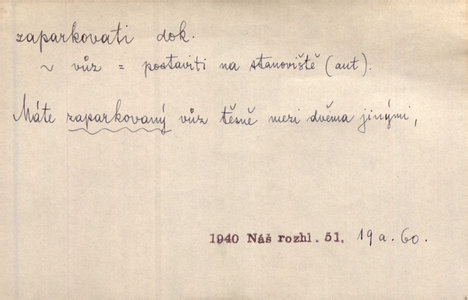 zaparkovati dok.
~ vůz = postaviti na stanoviště (aut).
Máte zaparkovaný vůz těsně mezi dvěma jinými,
1940 Náš rozhl. 51, 19 a. 60.